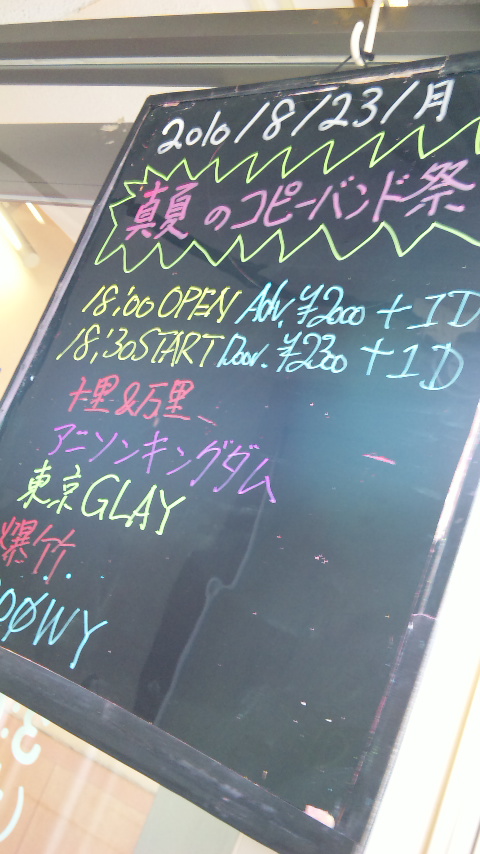 2010/8/23/月
真夏のコピーバンド祭
18:00 OPEN Adv.¥2000+1D
18:30START Door.¥2300+1D
十里&万里
アニソンキングダム
東京GLAY
爆竹